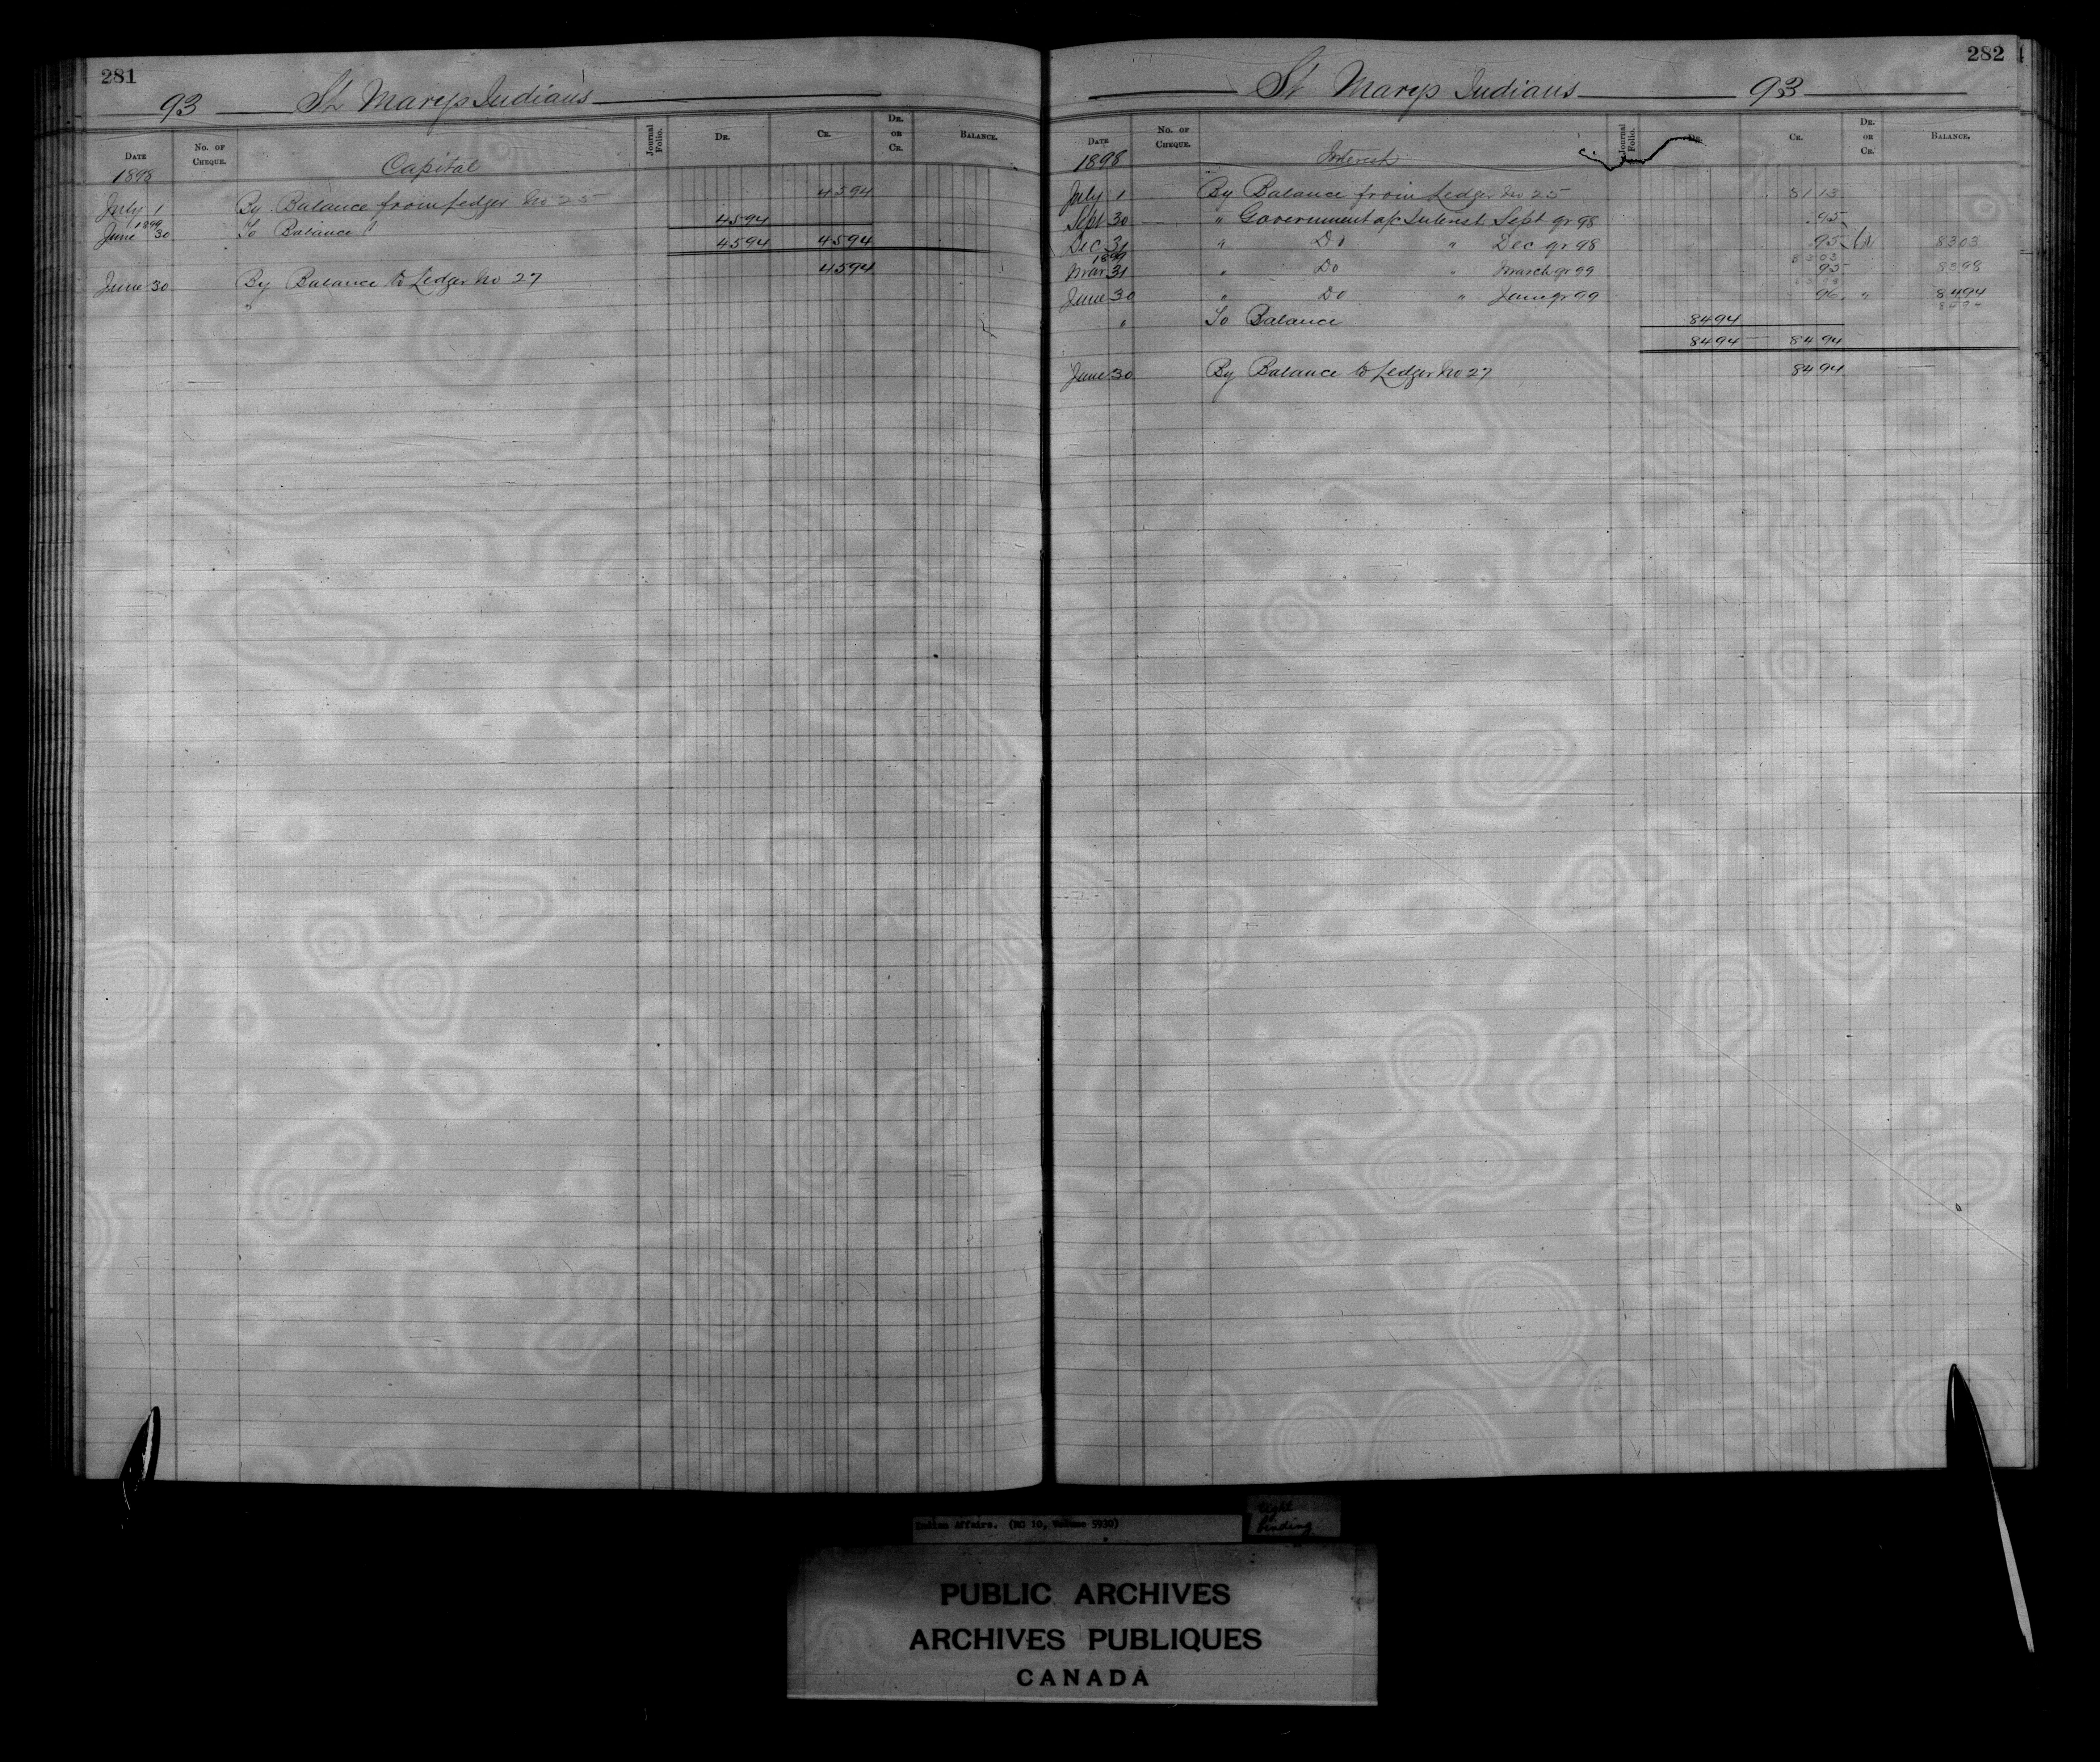 281
93 St Marys Indians
Date
No. of Cheque.
Capital
Journal Folio.
Dr.
Cr.
Dr. or Cr.
Balance.
1898
July 1 By Balance from Ledger No 25 4594
1899
June 30 To Balance 4594
4594 4594
June 30 By Balance to Ledger No 27 4594
282
St Marys Indians 93
Date
No. of Cheque.
Interest
Journal Folio.
Dr.
Cr.
Dr. or Cr.
Balance.
1898
July 1 By Balance from Ledger No 25 81 13
Sept 30 " Government a/c Interest Sept qr 98 95
Dec 31 " Do " Dec qr 98 95 Cr 8303
8303
1899
Mar 31 " Do " March qr 99 95 8398
June 30 " Do " June qr 99 96 " 8494
8494
" To Balance 8494
8494 8494
June 30 By Balance to Ledger No 27 8494
Indian Affairs. (RG 10, Volume 5930)
tight binding
PUBLIC ARCHIVES
ARCHIVES PUBLIQUES
CANADA